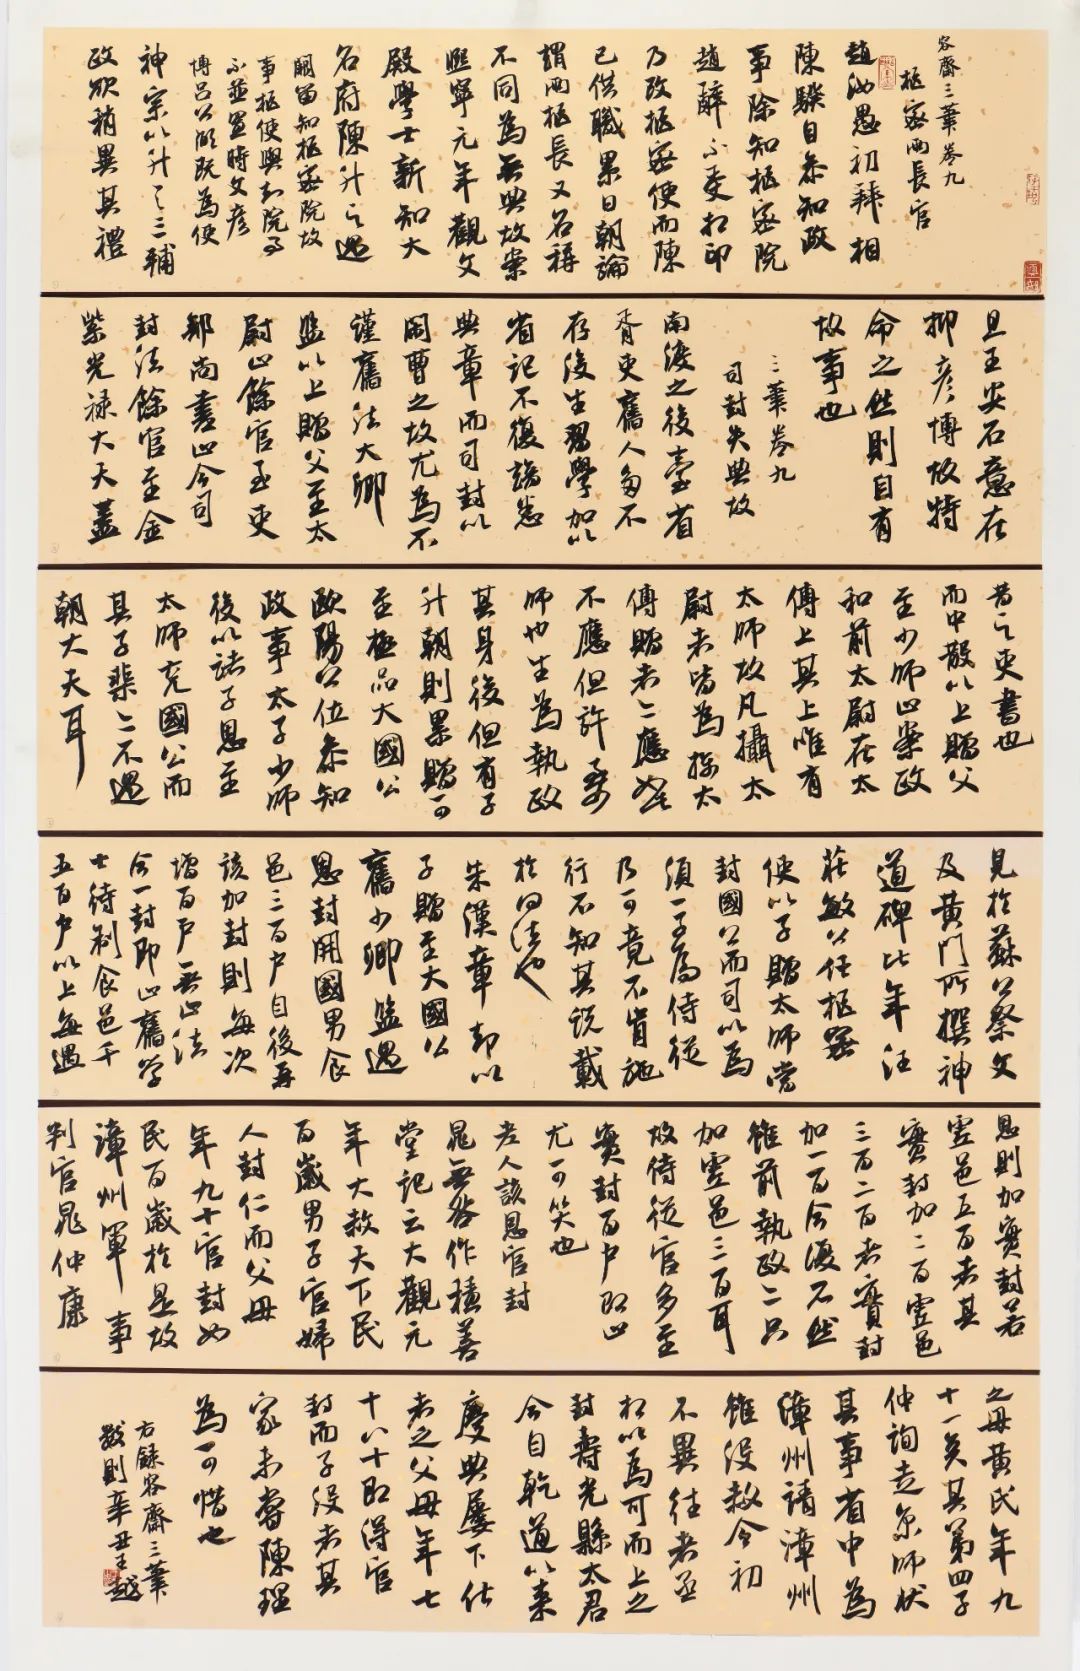 容齋三筆卷九
樞密兩長官
趙汝愚初拜相
陳騤自參知政
事除知樞密院
趙辭不受相印
乃改樞密使而陳
已供職累日朝論
謂兩樞長又名稱
不同為無典故案
熙寧元年觀文
殿學士新知大
名府陳升之過
闕留知樞密院故
事樞使與知院事
不並置時文彥
博呂公弼既為使
神宗以升之三輔
政欲稍異其禮
且王安石意在
抑彥博故特
命之然則自有
故事也
三筆卷九
司封失典故
南渡之後臺省
胥吏舊人多不
存後生習學加以
省記不復諳悉
典章而司封以
閑曹之故尤為不
謹舊法大卿
監以上贈父至太
尉止餘官至吏
部尚書止今司
封法餘官至金
紫光祿大夫蓋
昔之吏書也
而中散以上贈父
至少師止案政
和前太尉在太
傅上其上唯有
太師故凡攝太
尉者皆為攝太
傅贈者亦應如此
不應但許至少
師也生為執政
其身後但有子
升朝則累贈可
至極品大國公
歐陽公位參知
政事太子少師
後以諸子恩至
太師兗國公而
其子棐亦不過
朝大夫耳
見於蘇公祭文
及黃門所撰神
道碑比年汪
莊敏公任樞密
使以子贈太師當
封國公而司以為
須一子為侍從
乃可竟不肯施
行不知其說載
於何法也
朱漢章卻以
子贈至大國公
舊少卿監遇
恩封開國男食
邑三百戶自後再
該加封則每次
增百戶無止法
今一封即止舊學
士待制食邑千
五百戶以上每遇
恩則加實封若
虛邑五百者其
實封加二百虛邑
三百二百者實封
加一百今復不然
雖前執政亦只
加虛邑三百耳
故侍從官多至
實封百戶即止
尤可笑也
老人該恩官封
晁無咎作積善
堂記云大觀元
年大赦天下民
百歲男子官婦
人封仁而父母
年九十官封如
民百歲於是故
漳州軍事
判官晁仲康
之母黃氏年九
十一矣其第四子
仲詢走京師狀
其事省中為
漳州請漳州
雖沒赦令初
不異往者丞
相以為可而上之
封壽光縣太君
今自乾道以來
慶典屢下仕
者之父母年七
十八十即得官
封而子沒者其
家未嘗陳理
為可惜也
右錄容齋三筆
數則辛丑王越